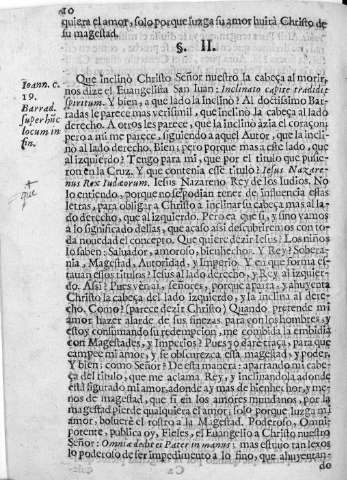 20
quiera el amor, solo porque juzga su amor huirà Christo de
su magestad.
§. II.
Que inclinò Christo Señor nuestro la cabeça al morir,
nos dize el Euangelista San Iuan: Inclinato capite tradidit
spiritum. Y bien, a que lado la inclinò? Al doctissimo Bar-
radas le parece mas verisimil, que inclinò la cabeça al lado
derecho. A otros les parece, que la inclinò àzia el coraçon;
pero a mi me parece, siguiendo a aquel Autor, que la incli-
nò al lado derecho. Bien; pero porque mas a este lado, que
al izquierdo? Tengo para mi, que por el titulo que pusie-
ron en la Cruz. Y que contenia esse titulo? Iesus Nazare-
nus Rex Iudæorum. Iesus Nazareno Rey de los Iudios. No
lo entiendo, porque no se podian tener de influencia essas
letras, para obligar a Christo a inclinar su cabeça mas al la-
do derecho, que al izquierdo. Pero ea que si, y sino vamos
a lo significado dellas, que acaso assi descubrirèmos con to-
da nouedad el concepto. Que quiere dezir Iesus? Los niños
lo saben: Saluador, amoroso, bienhechor. Y Rey? Sobera-
nia, Magestad, Autoridad, y Imperio. Y en que forma es-
tauan essos titulos? Iesus al lado derecho, y Rey al izquier-
do. Assi? Pues venia, señores, porque aparta, y ahuyenta
Christo la cabeça del lado izquierdo, y la inclina al dere-
cho. Como? (parece dezir Christo) Quando pretende mi
amor hazer alarde de sus finezas para con los hombres, y
estoy consumando su redempcion, me combida la embidia
con Magestades, y Imperios? Pues yo darè traça, para que
campee mi amor, y se obscurezca essa magestad, y poder.
Y bien: como Señor? De esta manera: apartando mi cabe-
ça del titulo, que me aclama Rey, y inclinandola adonde
està figurado mi amor, adonde ay mas de bienhechor, y me-
nos de magestad, que si en los amores mundanos, por la
magestad pierde qualquiera el amor; solo porque luzga mi
amor, boluerè el rostro a la Magestad. Poderoso, Omni-
potente, publica oy, Fieles, el Euangelio a Christo nuestro
Señor: Omnia dedit ei Pater in manus: mas estuuo tan lexos
lo poderoso de ser impedimento a lo fino, que ahuyentan-
do
Ioann. c.
19.
Barrad.
super hūc
locum in
fin.
+
que